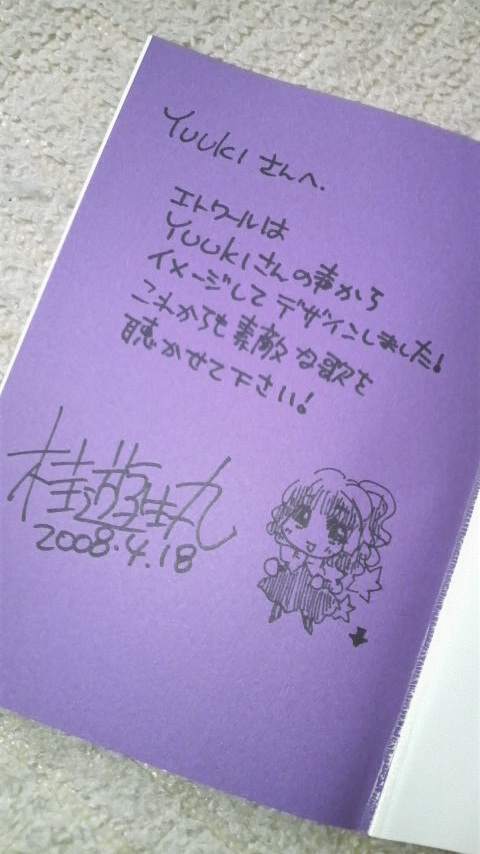 YUUKIさんへ.
エトワールは
YUUKIさんの声から
イメージしてデザインしました!
これからも素敵な歌を
聴かせて下さい!
桂遊生丸
2008.4.18